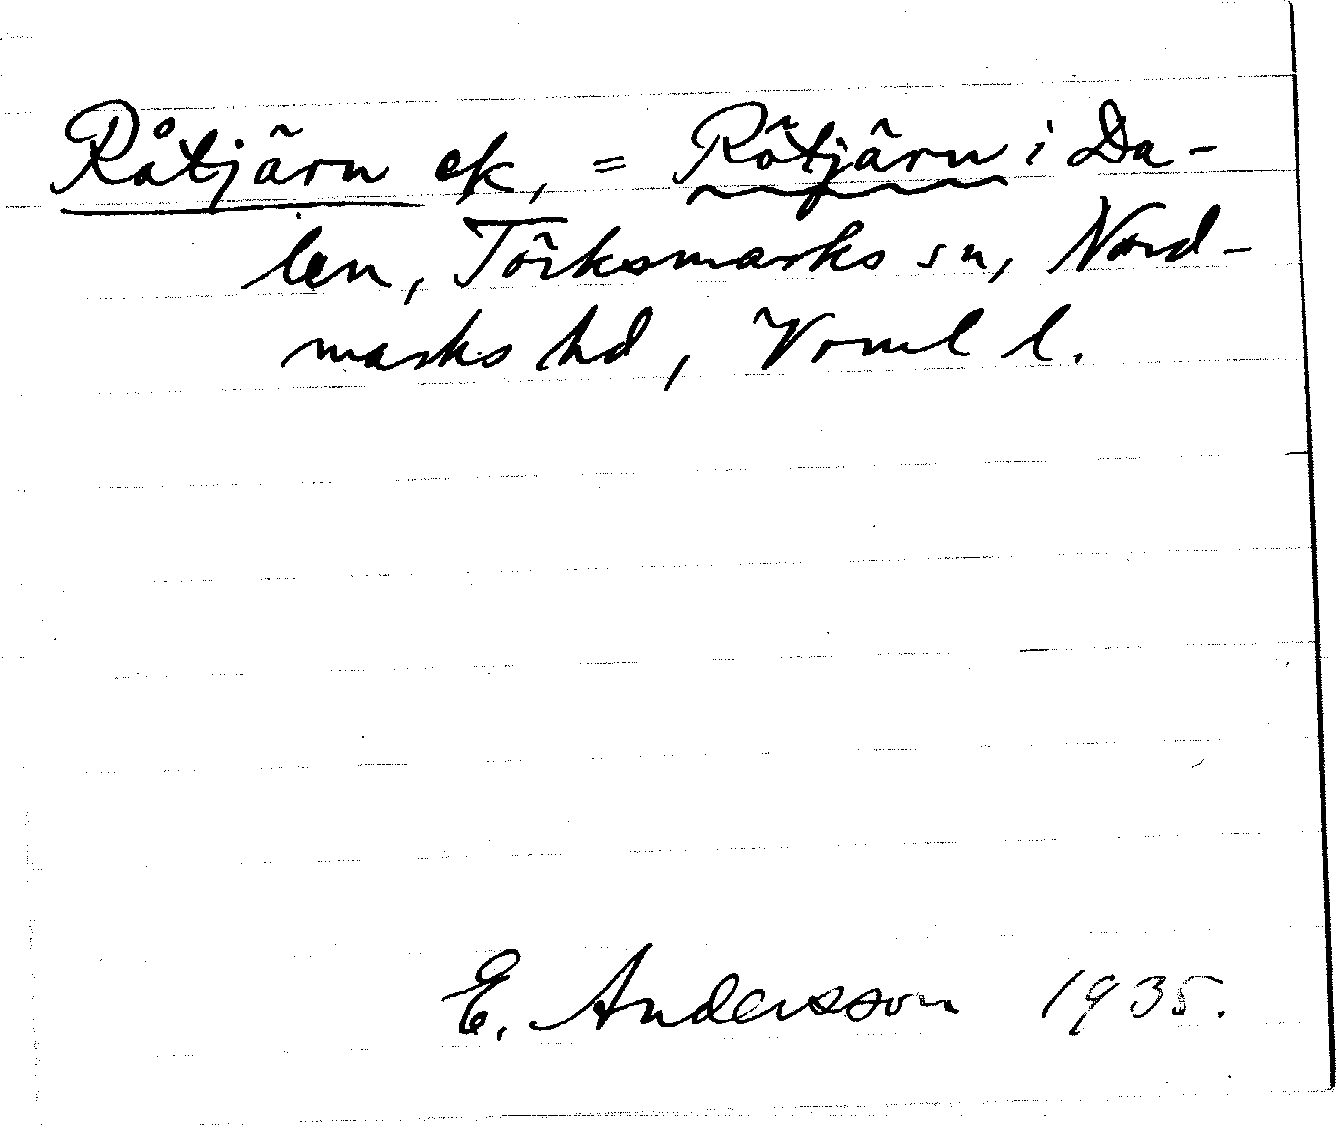 Råtjärn ek, = Rötjärn i Da-
len, Töcksmarks sn, Nord-
marks hd, Vrml l.
E. Andersson 1935.